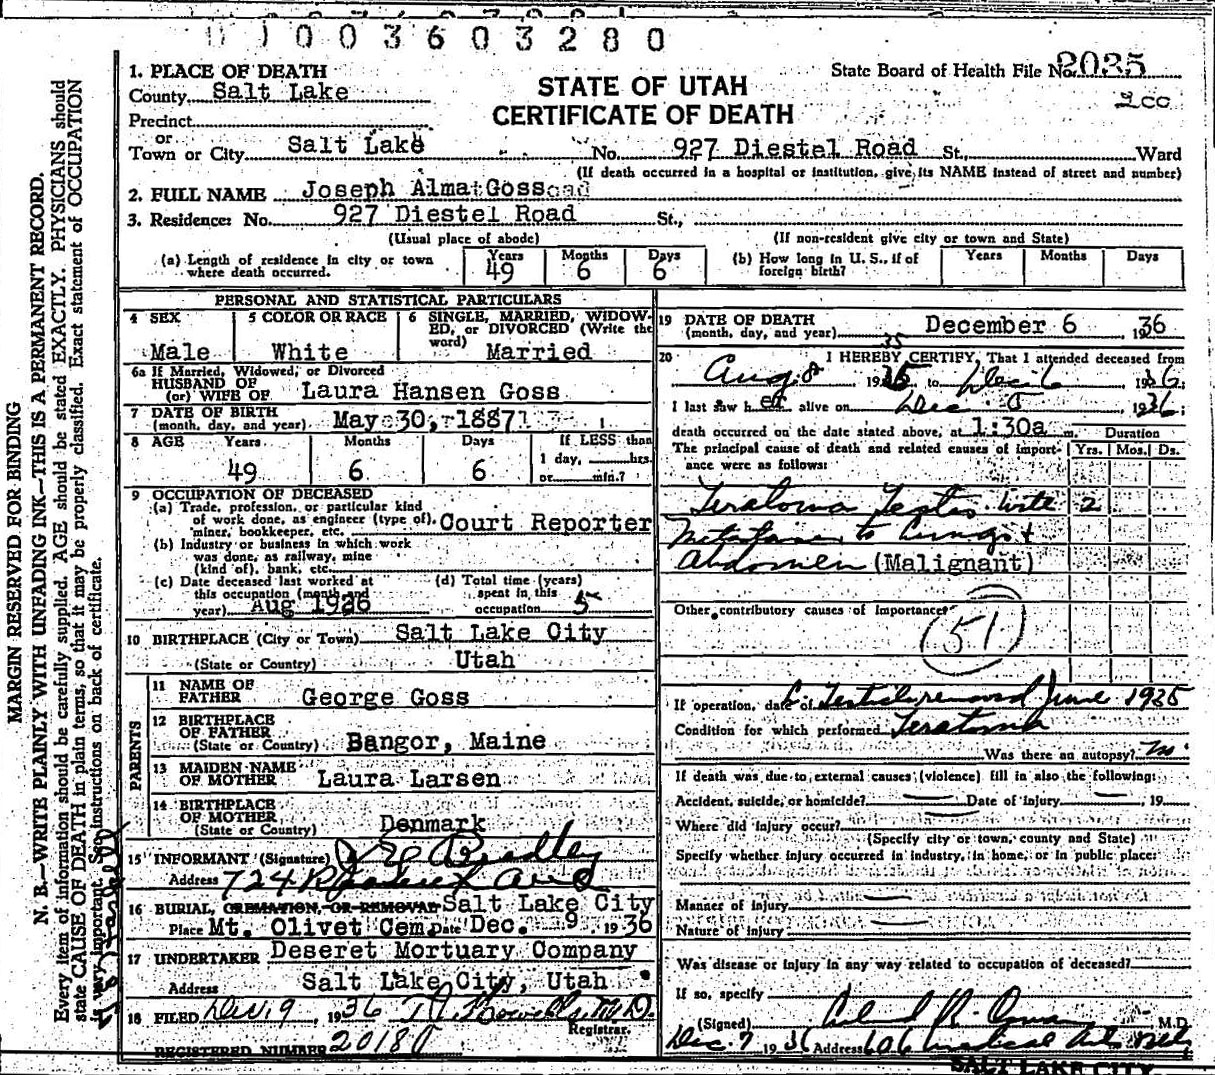 1003603280
1. PLACE OF DEATH
County Salt Lake
Precinct
or
Town or City Salt Lake
STATE OF UTAH
CERTIFICATE OF DEATH
State Board of Health File No. 2035
No. 927 Diestel Road St., Ward
(If death occurred in a hospital or institution, give its NAME instead of street and number)
2. FULL NAME Joseph Alma Goss
3. Residence: No. 927 Diestel Road St.,
(Usual place of abode) (If non-resident give city or town and State)
(a) Length of residence in city or town where death occurred. Years 49 Months 6 Days 6
(b) How long in U. S., if of foreign birth? Years Months Days
PERSONAL AND STATISTICAL PARTICULARS
4 SEX Male
5 COLOR OR RACE White
6 SINGLE, MARRIED, WIDOWED, or DIVORCED (Write the word) Married
6a If Married, Widowed, or Divorced
HUSBAND OF
(or) WIFE OF Laura Hansen Goss
7 DATE OF BIRTH
(month, day, and year) May 30, 1887
8 AGE Years 49 Months 6 Days 6 If LESS than 1 day, hrs. or min.?
9 OCCUPATION OF DECEASED
(a) Trade, profession, or particular kind
of work done, as engineer (type of),
miner, bookkeeper, etc. Court Reporter
(b) Industry or business in which work
was done, as railway, mine
(kind of), bank, etc.
(c) Date deceased last worked at
this occupation (month and
year) Aug 1936
(d) Total time (years)
spent in this
occupation 5
10 BIRTHPLACE (City or Town) Salt Lake City
(State or Country) Utah
PARENTS
11 NAME OF
FATHER George Goss
12 BIRTHPLACE
OF FATHER
(State or Country) Bangor, Maine
13 MAIDEN NAME
OF MOTHER Laura Larsen
14 BIRTHPLACE
OF MOTHER
(State or Country) Denmark
15 INFORMANT (Signature) Bradley
Address 724
16 BURIAL, CREMATION, OR REMOVAL Salt Lake City
Place Mt. Olivet Cem. Date Dec. 9 1936
17 UNDERTAKER Deseret Mortuary Company
Address Salt Lake City, Utah
18 FILED Dec. 9, 1936 M.D.
Registrar.
REGISTERED NUMBER 20180
19 DATE OF DEATH
(month, day, and year) December 6 1936
20 I HEREBY CERTIFY, That I attended deceased from
Aug. 8 1935 to Dec. 6 1936;
I last saw her alive on Dec. 5 1936;
death occurred on the date stated above, at 1:30a m. Duration
The principal cause of death and related causes of importance were as follows: Yrs. Mos. Ds.
Teratoma Testis with 2
Metastases to Lungs +
Abdomen (Malignant)
Other contributory causes of importance:
51
If operation, date of L. Testicle removed June 1935
Condition for which performed Teratoma
Was there an autopsy? no
If death was due to external causes (violence) fill in also the following:
Accident, suicide, or homicide? Date of injury , 19
Where did injury occur?
(Specify city or town, county and State)
Specify whether injury occurred in industry, in home, or in public place:
Manner of injury
Nature of injury
Was disease or injury in any way related to occupation of deceased?
If so, specify
(Signed) M.D.
Dec. 7 1936 Address 606 Medical Arts Bldg
SALT LAKE CITY
MARGIN RESERVED FOR BINDING
N. B.—WRITE PLAINLY WITH UNFADING INK—THIS IS A PERMANENT RECORD.
Every item of information should be carefully supplied. AGE should be stated EXACTLY. PHYSICIANS should
state CAUSE OF DEATH in plain terms, so that it may be properly classified. Exact statement of OCCUPATION
is very important. See instructions on back of certificate.